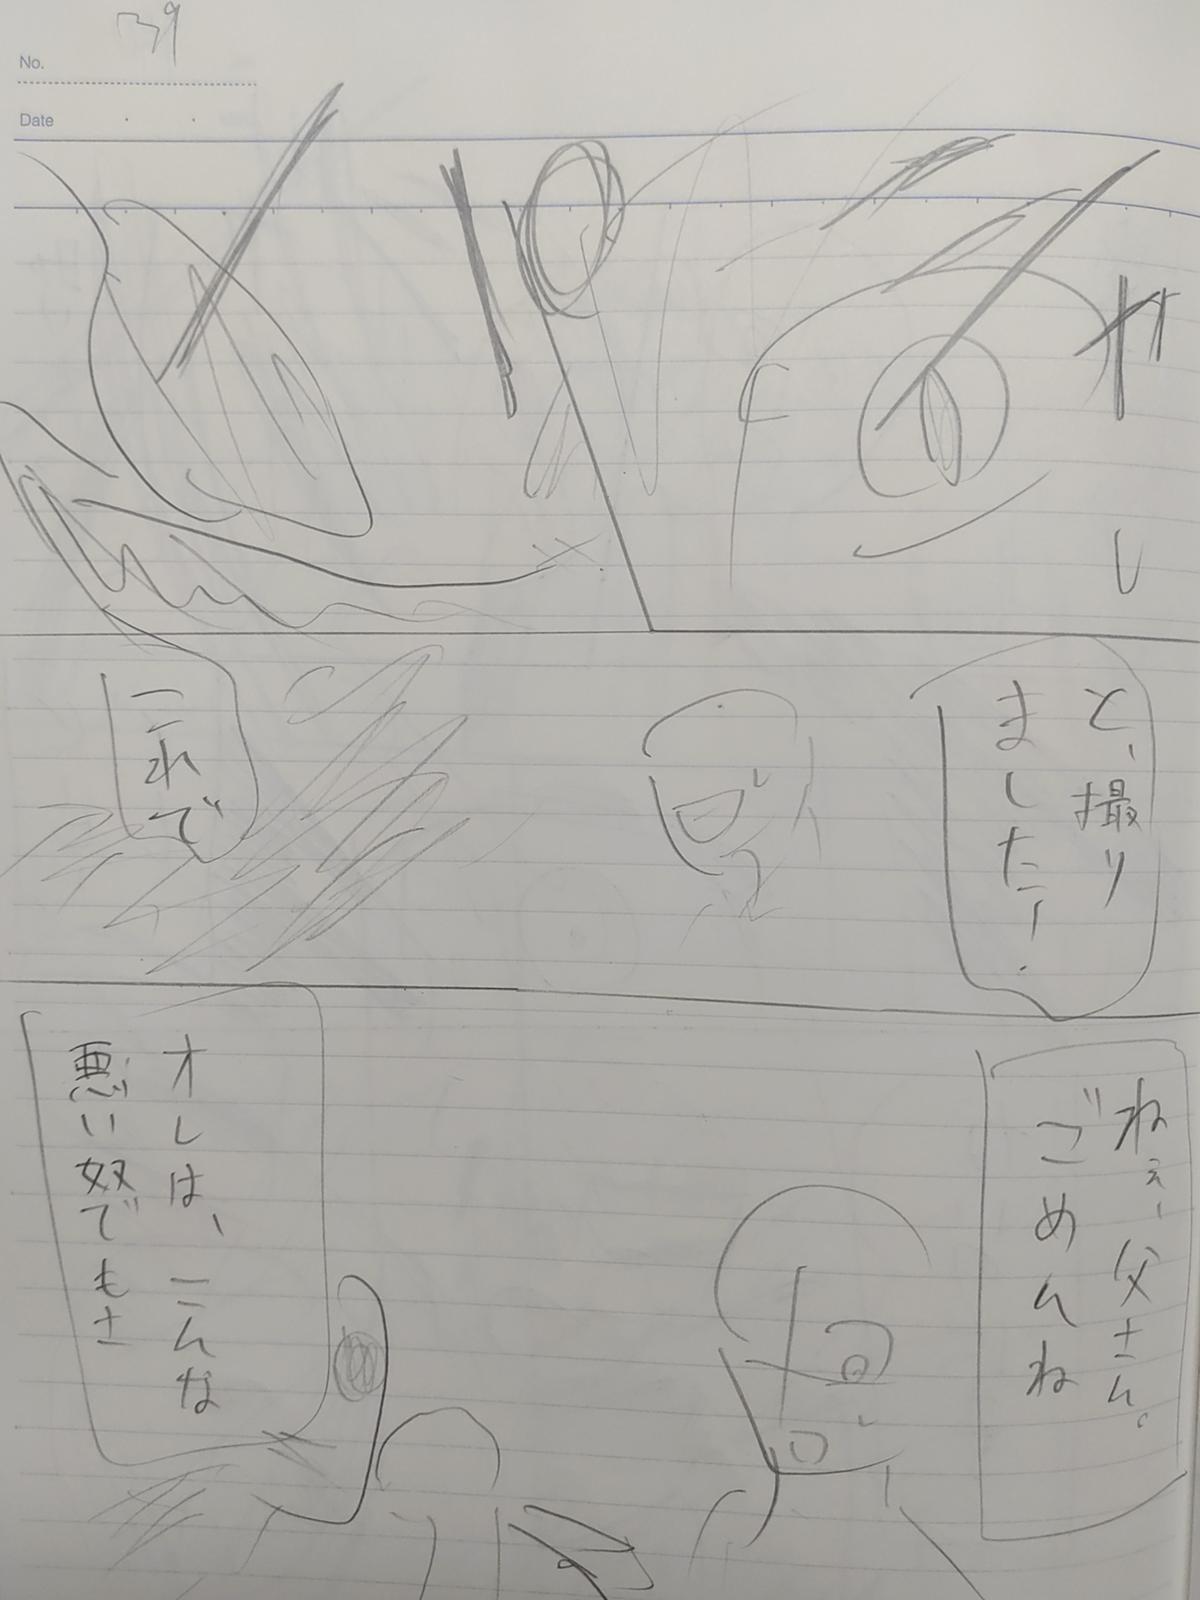 39
No.
Date
ガ
し
と、撮り
ましたー!
これで
ねぇー父さん。
ごめんね
オレは、こんな
悪い奴でもさ